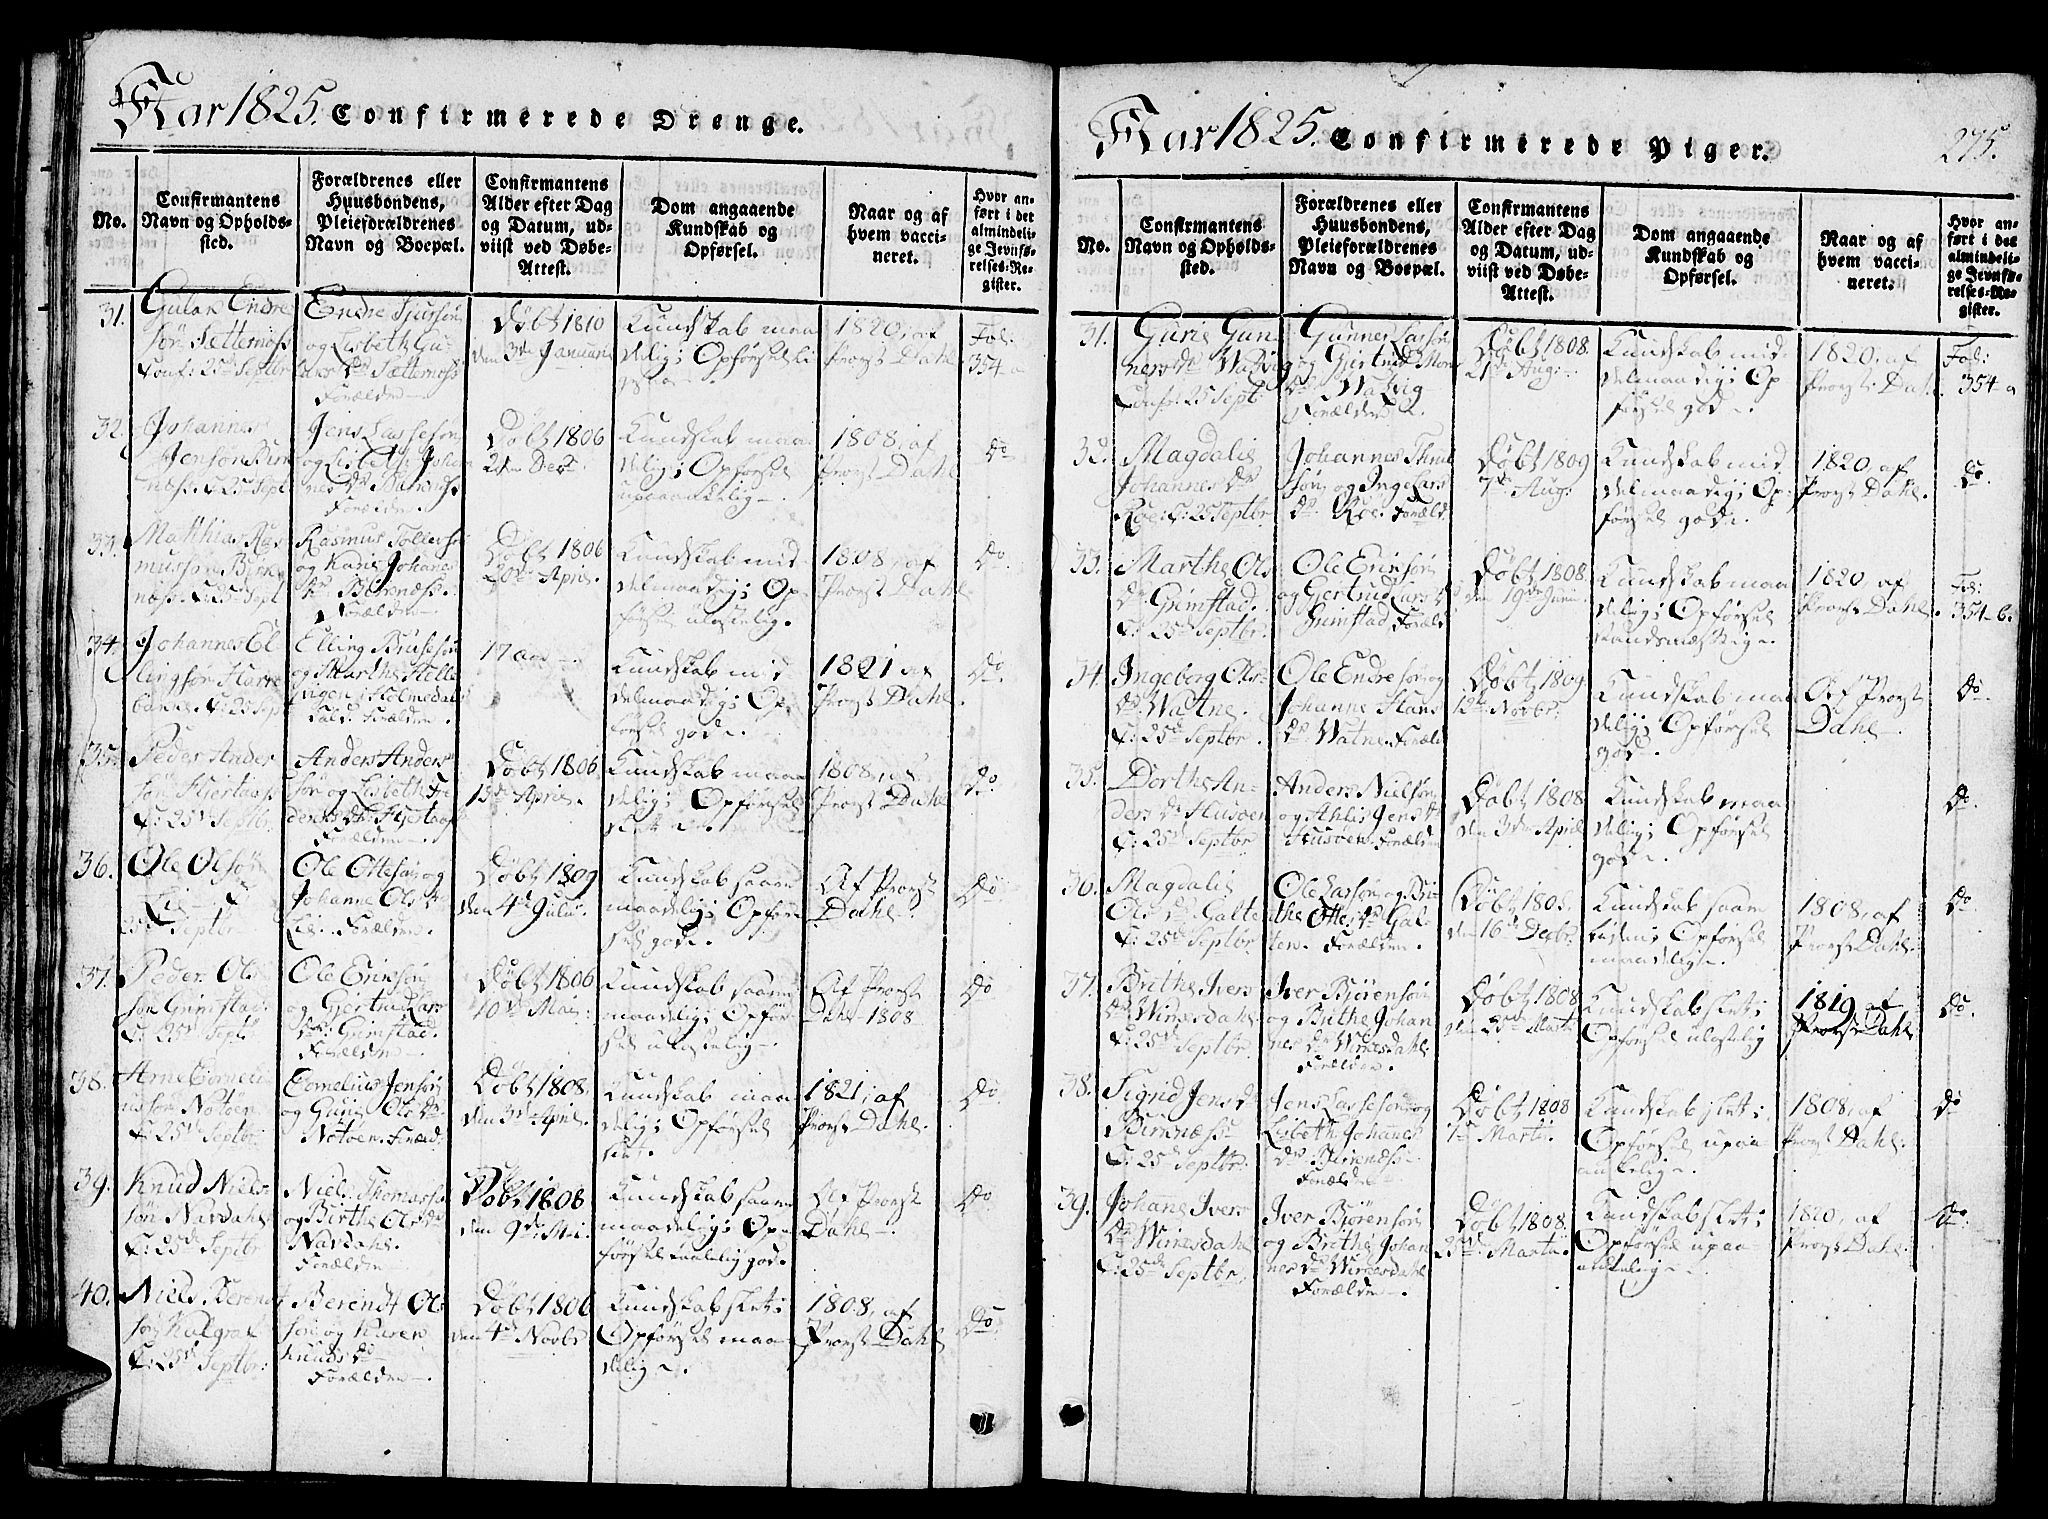 Aar 1825. Confirmerede Drenge.
No.
Confirmantens
Navn og Opholds-
sted.
Forældrenes eller
Huusbondens,
Pleieforældrenes
Navn og Boepæl.
Confirmantens
Alder efter Dag
og Datum, ud-
viist ved Døbe-
Attest.
Dom angaaende
Kundskab og
Opførsel.
Naar og af
hvem vacci-
neret.
Hvor an-
ført i det
almindeli-
ge Jevnfø-
relses-Re-
gister.
31.
Gutak Endre
søn Sætternøss
Conf: 25de Septbr
Endre Siursøn
og Lisbeth Gu-
Forældre
Døbt 1810
den 3de Januari
Kundskab maa
delig; Opførsel li
1820, af
Provst Dahl
Fol:
354 a
32.
Johannes
Jensøn Birk
næss. C: 25 Sept
Jens Lassesøn
og Lisbeth Johan
nes Dr Birknæss
Forældre
Døbt 1806
21de Decr
Kundskab maa
delig; Opførsel
upaaankelig
1808, af
Provst Dahl
Do
33.
Matthias Ras
mussøn Birk
næss. C: 25 Sept
Rasmus Tollefs
og Karie Johanes
Dr Birknæss.
Forældre
Døbt 1806
20de April.
Kundskab mid
delmaadig; Op
førsel ulastelig.
1808, af
Provst Dahl
Do
34.
Johannes El
lingsøn Harre
bakke. C: 25 Sep
Elling Brusesøn
og Marthe Helle
vigen i Holmedals
Kald. Forældre
17 aar
Kundskab mid
delmaadig; Op
førsel god.
1821 af
Provst Dahl.
Do.
35.
Peder Ander
søn Hjertaas
C: 25de Septbr.
Anders Anders
søn og Lisbeth Fre
deriks Dr Hjertaas
Forældre
Døbt 1806
13de April.
Kundskab maa
delig; Opførsel
slet
1808, af
Provst Dahl
Do.
36.
Ole Olsøn
Lie C:
25de Septbr
Ole Ottesøn og
Johanne Ols Dr
Lie. Forældre.
Døbt 1809
den 4de Julii.
Kundskab saare
maadelig; Opfør-
sel god.
Af Provst
Dahl.
Do
37.
Peder Ols
søn Grimstad
C: 25de Septb
Ole Eriksøn
og Gjertrud Lars
Dr Grimstad.
Forældre
Døbt 1806
10de Mai.
Kundskab saare
maadelig; Opfør-
sel ulastelig
Af Provst
Dahl 1808
Do
38.
Arne Corneli
ussøn Notøen
C: 25de Septbr:
Cornelius Jensøn
og Gurie Ols Dr
Notøen. Foræld:
Døbt 1808.
den 3de April.
Kundskab maa
delig; Opførsel
slet.
1821, af
Provst Dahl.
Do.
39.
Knud Niels
søn Navdahl
C: 25de Septbr
Niels Thomassø
og Birthe Ols Dr
Navdahl.
Forældre
Døbt 1808
den 9de Mai.
Kundskab saare
maadelig; Op-
førsel temmelig god.
Af Provst
Dahl
Do
40.
Niels Berendt
søn Kalgraf
C: 25de Septbr:
Berendt Ols
søn og Karen
Knuds Dr
Forældre
Døbt 1806
den 4de Novbr
Kundskab slet;
Opførsel maa-
delig.
1808, af
Provst Dahl
Do
Aar 1825. Confirmerede Piger.
275.
No.
Confirmantens
Navn og Opholds-
sted.
Forældrenes eller
Huusbondens,
Pleieforældrenes
Navn og Boepæl.
Confirmantens
Alder efter Dag
og Datum, ud-
viist ved Døbe-
Attest.
Dom angaaende
Kundskab og
Opførsel.
Naar og af
hvem vacci-
neret.
Hvor an-
ført i det
almindeli-
ge Jevnfø-
relses-Re-
gister.
31.
Gurie Gun
ners Dr Waavig
Conf: 25 Septb:
Gunner Larssøn
og Gjertrud Mon
Dr Waavig
Forældre
Døbt 1808.
21de Aug:
Kundskab mid
delmaadig; Op
førsel god.
1820, af
Provst Dahl.
Fol:
354 a
32.
Magdalis
Johannes Dr
Roe. C: 25 Septbr
Johannes Thrul
søn og Inge Lars
Dr Roe. Foræld:
Døbt 1809
7de Aug:
Kundskab mid
delmaadig; Op-
førsel god.
1820, af
Provst Dahl.
Do
33.
Marthe Ols
Dr Grimstad.
C: 25de Septbr.
Ole Eriksøn
og Gjertrud Lars Dr
Grimstad, Foræld
Døbt 1808.
den 19de Junii
Kundskab maa
delig; Opførsel
1820, af
Provst Dahl.
Fol:
354 b.
34.
Ingeborg Ols
Dr Watne.
C: 25de Septbr.
Ole Endresøn og
Johanne Hans
Dr Watne. Foræld
Døbt 1809
12de Novbr:
Kundskab maa
delig; Opførsel
god.
Af Provst
Dahl
Do.
35.
Dorthe An-
ders Dr Husøen
C: 25de Septbr
Anders Nielsøn
og Ahlis Jens Dr
Husøen. Forældre
Døbt 1808
den 3de April
Kundskab maa
delig; Opførsel
god.
Do.
36.
Magdalis
Ols Dr Galte
C: 25de Septbr
Ole Larsøn og Bri-
the Ottes Dr Gal-
ten. Forældre.
Døbt 1805.
den 16de Decbr:
Kundskab saare
liden; Opførsel
maadelig.
1808, af
Provst Dahl.
Do
37.
Brithe Ivers
Dr Wirnesdahl
C: 25de Septbr
Iver Bjørensøn
og Brithe Johan
nes Dr Wirnesdahl.
Forældre.
Døbt 1808
den 25de Marti.
Kundskab slet;
Opførsel ulastelig
1819 af
Provst Dahl
Do.
38.
Sigrid Jens Dr
Birknæss
C: 25de Septbr:
Jens Lassesøn og
Lisbeth Johannes
Dr Birknæss
Forældre
Døbt 1808
1de Martii.
Kundskab slet;
Opførsel upaa
ankelig.
1808, af
Provst Dahl.
Do
39.
Johanne Ivers
Dr Wirnesdahl
C: 25de Septbr.
Iver Bjørensøn
og Brithe Johan
nes Dr Wirnesdahl
Forældre.
Døbt 1808.
25de Martii.
Kundskab slet;
Opførsel upaa-
ankelig.
1820, af
Provst Dahl.
Do.